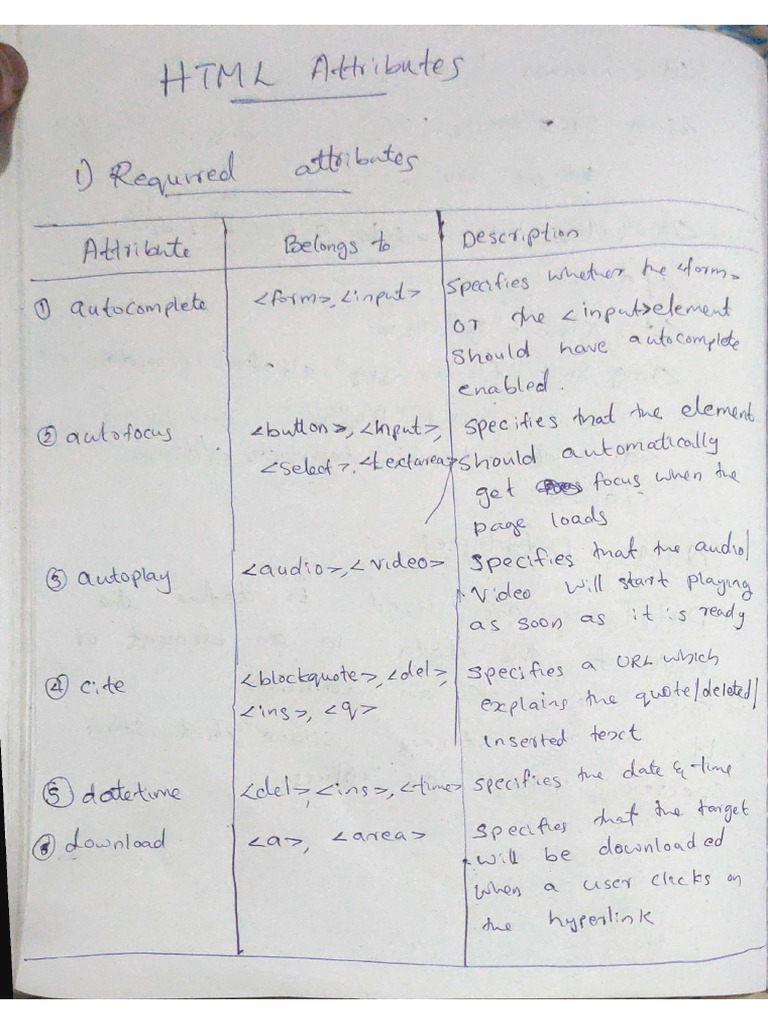 HTML Attributes
1) Requrred attributes
Attribute Belongs to Description
① autocomplete <form>, <input> specifies whether the <form>
or the <input>element
should have autocomplete
enabled.
② autofocus <button>, <Input>, specifies that the element
<select>, <textarea> should automatically
get focus when the
page loads
③ autoplay <audio>, <video> specifies that the audio/
Video will start playing
as soon as it is ready
④ cite <blockquote>, <del>, specifies a URL which
<ins>, <q> explains the quote/deleted/
Inserted text
⑤ datetime <del>, <ins>, <time> specifies the date & time
⑥ download <a>, <area> specifies that the target
will be downloaded
when a user clicks on
the hyperlink